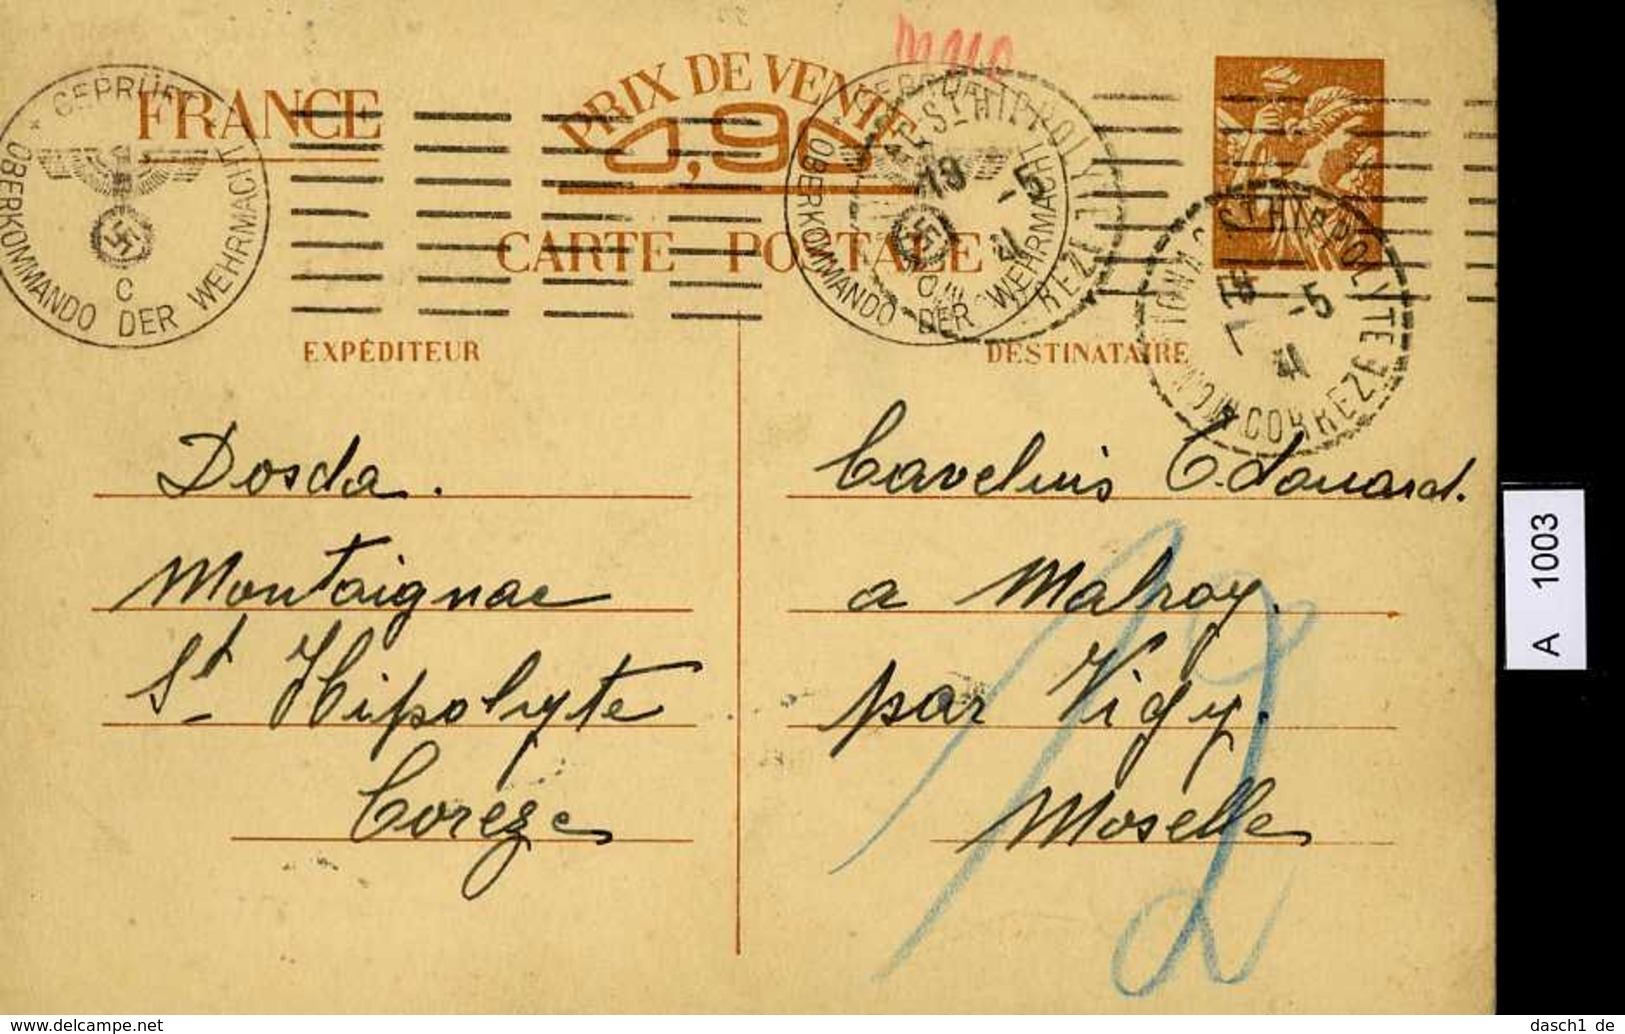 FRANCE
PRIX DE VENTE
0,90
CARTE POSTALE
GEPRÜFT
OBERKOMMANDO DER WEHRMACHT
C
OBERKOMMANDO DER WEHRMACHT
St HIPPOLYTE
REZE
19 -5 41
St HIPPOLYTE
CORREZE
-5 41
EXPÉDITEUR
DESTINATAIRE
Dosda.
Montaignac
St Hipolyte
Coreze
Cavelius Edouard.
a Malroy.
par Vigy.
Moselle
A 1003
dasch1_de